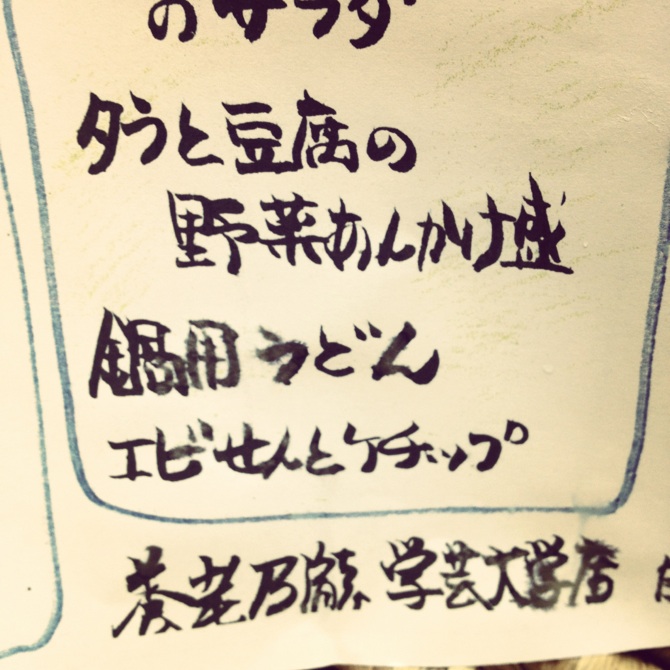 のサラダ
タラと豆腐の
野菜あんかけ盛
鍋用うどん
エビせんとケチャップ
養老乃瀧 学芸大学店